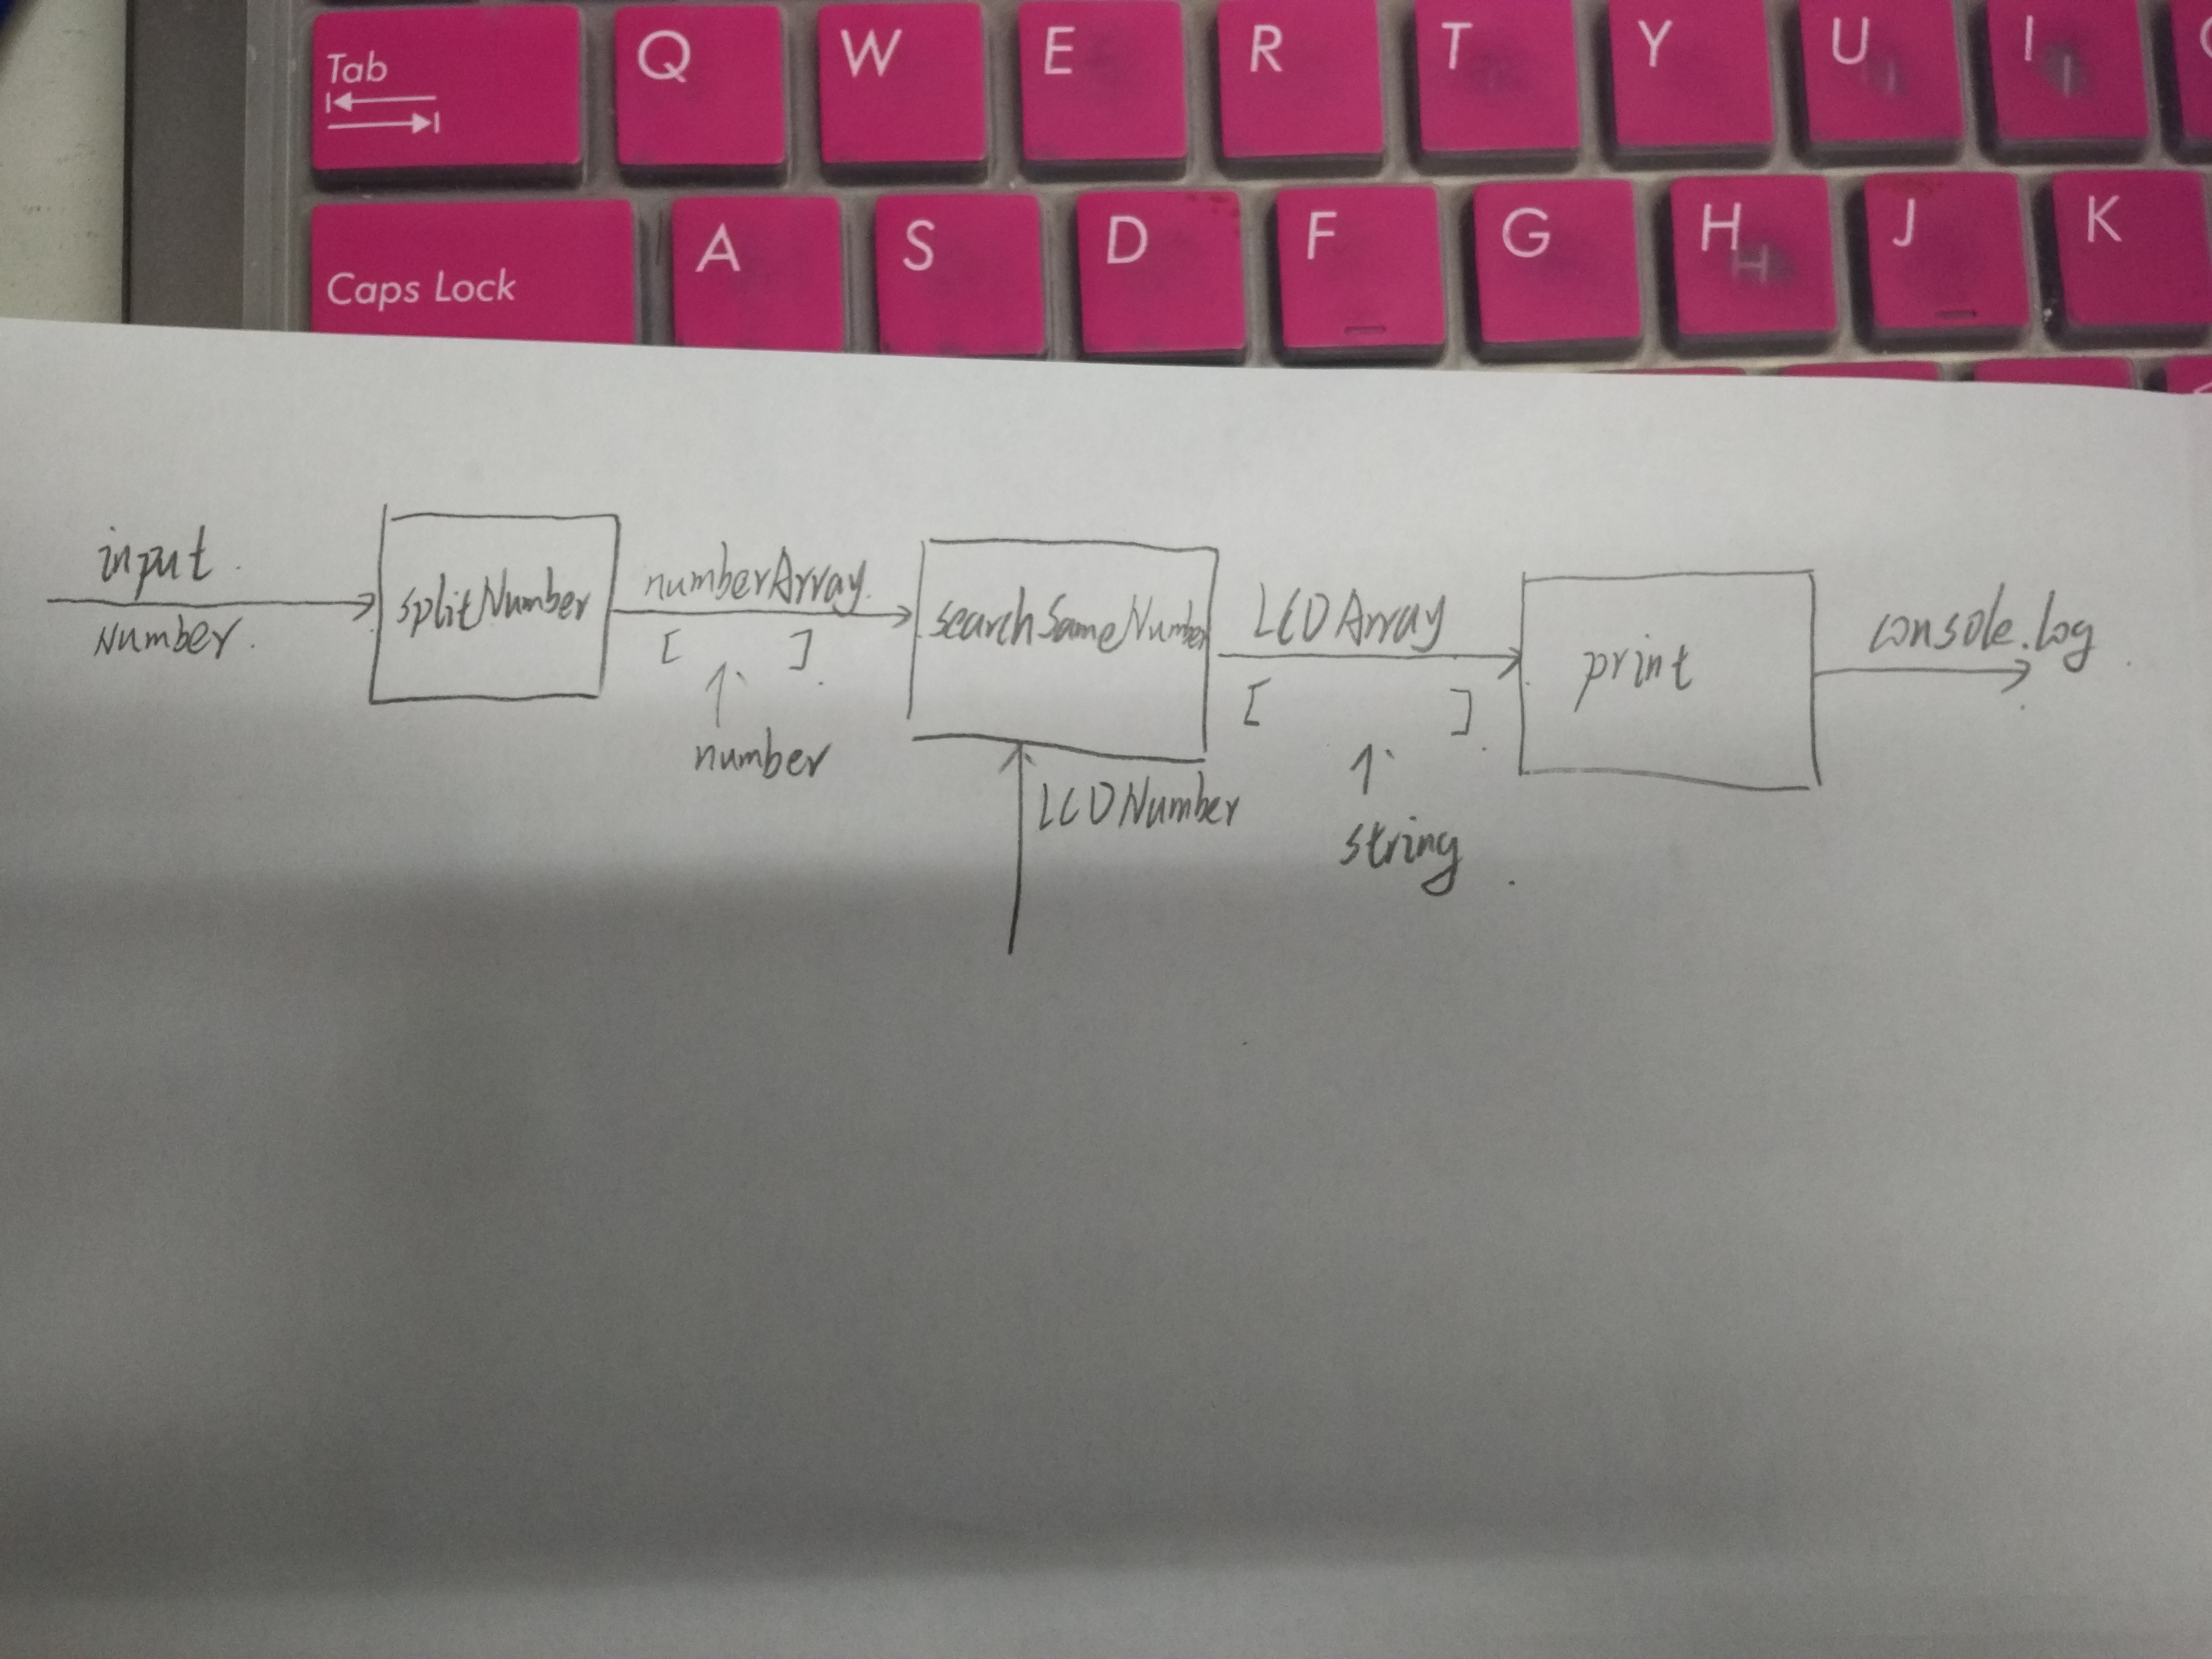 Tab Q W E R T Y U I
Caps Lock A S D F G H J K
H
input
Number.
splitNumber
numberArray.
[ ]
number
searchSameNumber
LCDNumber
LCDArray
[ ]
string
print
console.log